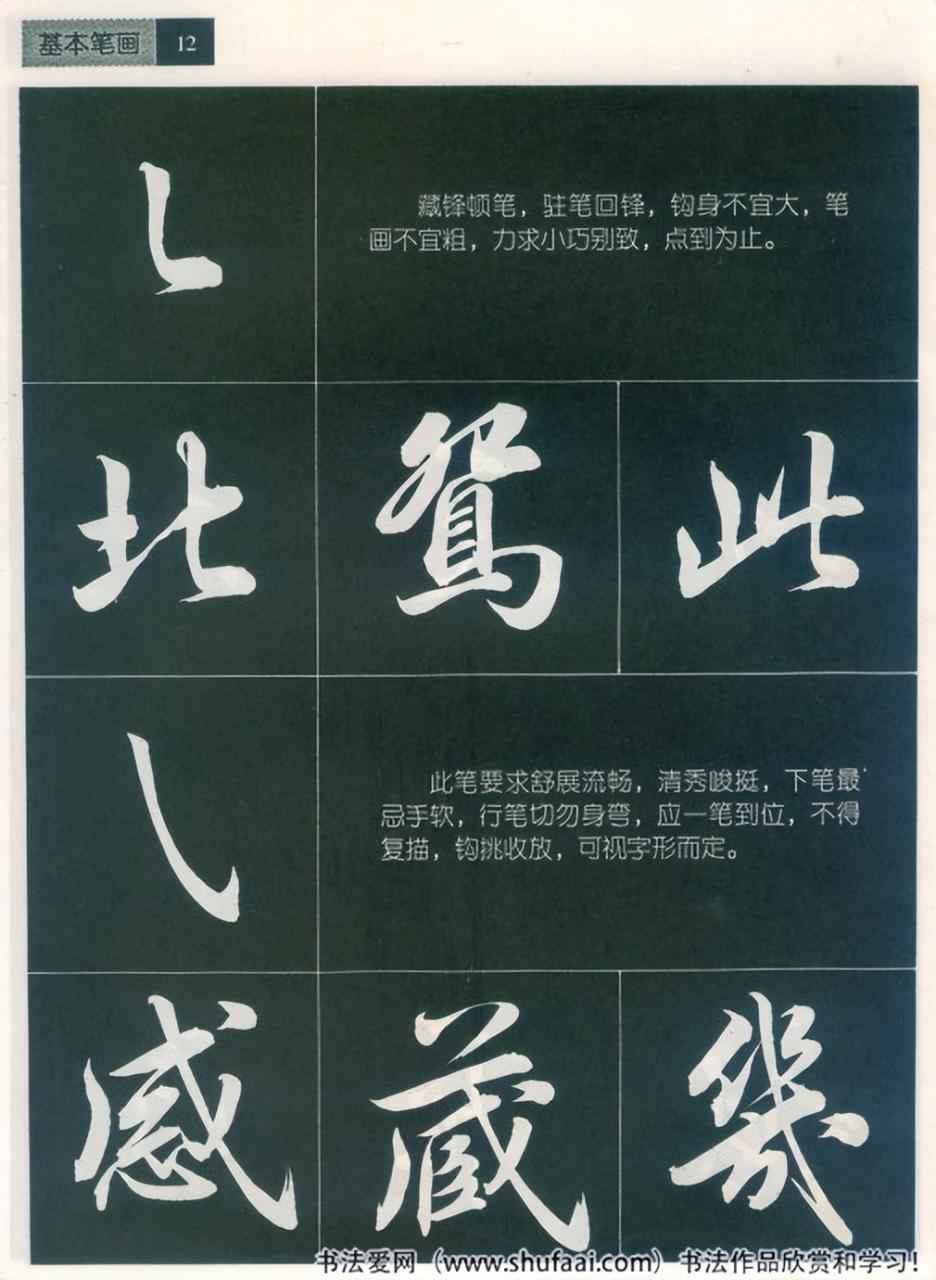 基本笔画 12
藏锋顿笔，驻笔回锋，钩身不宜大，笔
画不宜粗，力求小巧别致，点到为止。
北 鴛 此
此笔要求舒展流畅，清秀峻挺，下笔最
忌手软，行笔切勿身弯，应一笔到位，不得
复描，钩挑收放，可视字形而定。
感 蔵 幾
书法爱网（www.shufaai.com）书法作品欣赏和学习！